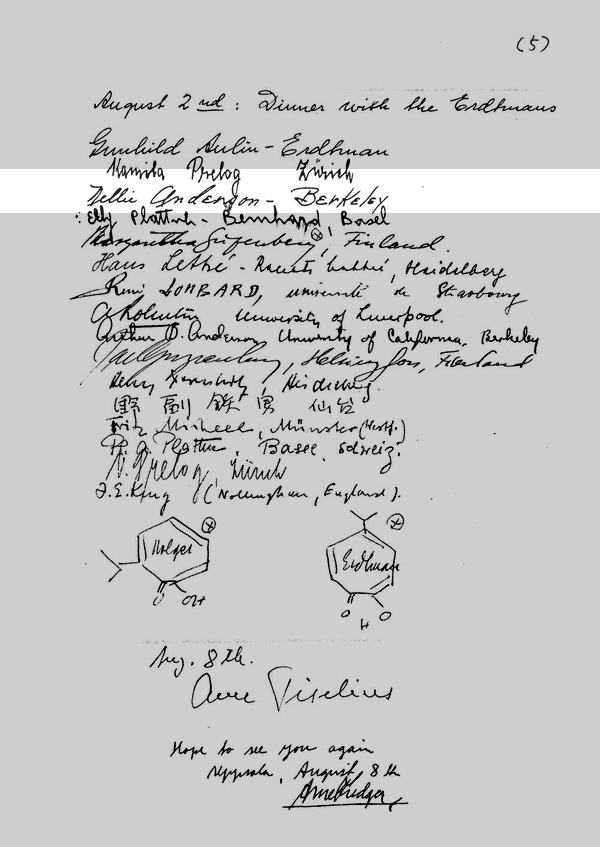 (5)
August 2nd: Dinner with the Erdtmans
Gunhild Aulin-Erdtman
Kamila Prelog Zürich
Nellie Anderson - Berkeley
: Elly Plattner - Bernhard, Basel
Finland.
Hans Lettré - Renate Lettré, Heidelberg
René LOMBARD, université de Strasbourg
University of Liverpool.
Arthur D. Anderson University of California, Berkeley
Helsingfors, Finland
Heidelberg
野副 鉄男 仙台
Fritz Micheel, Münster (Westf.)
Pl. A. Plattner, Basel, Schweiz.
V. Prelog, Zürich
F. E. King (Nottingham, England).
Holger
O OH
Erdtman
O O
H
Aug. 8th.
Arne Tiselius
Hope to see you again
Uppsala, August, 8th
Arne Fredga